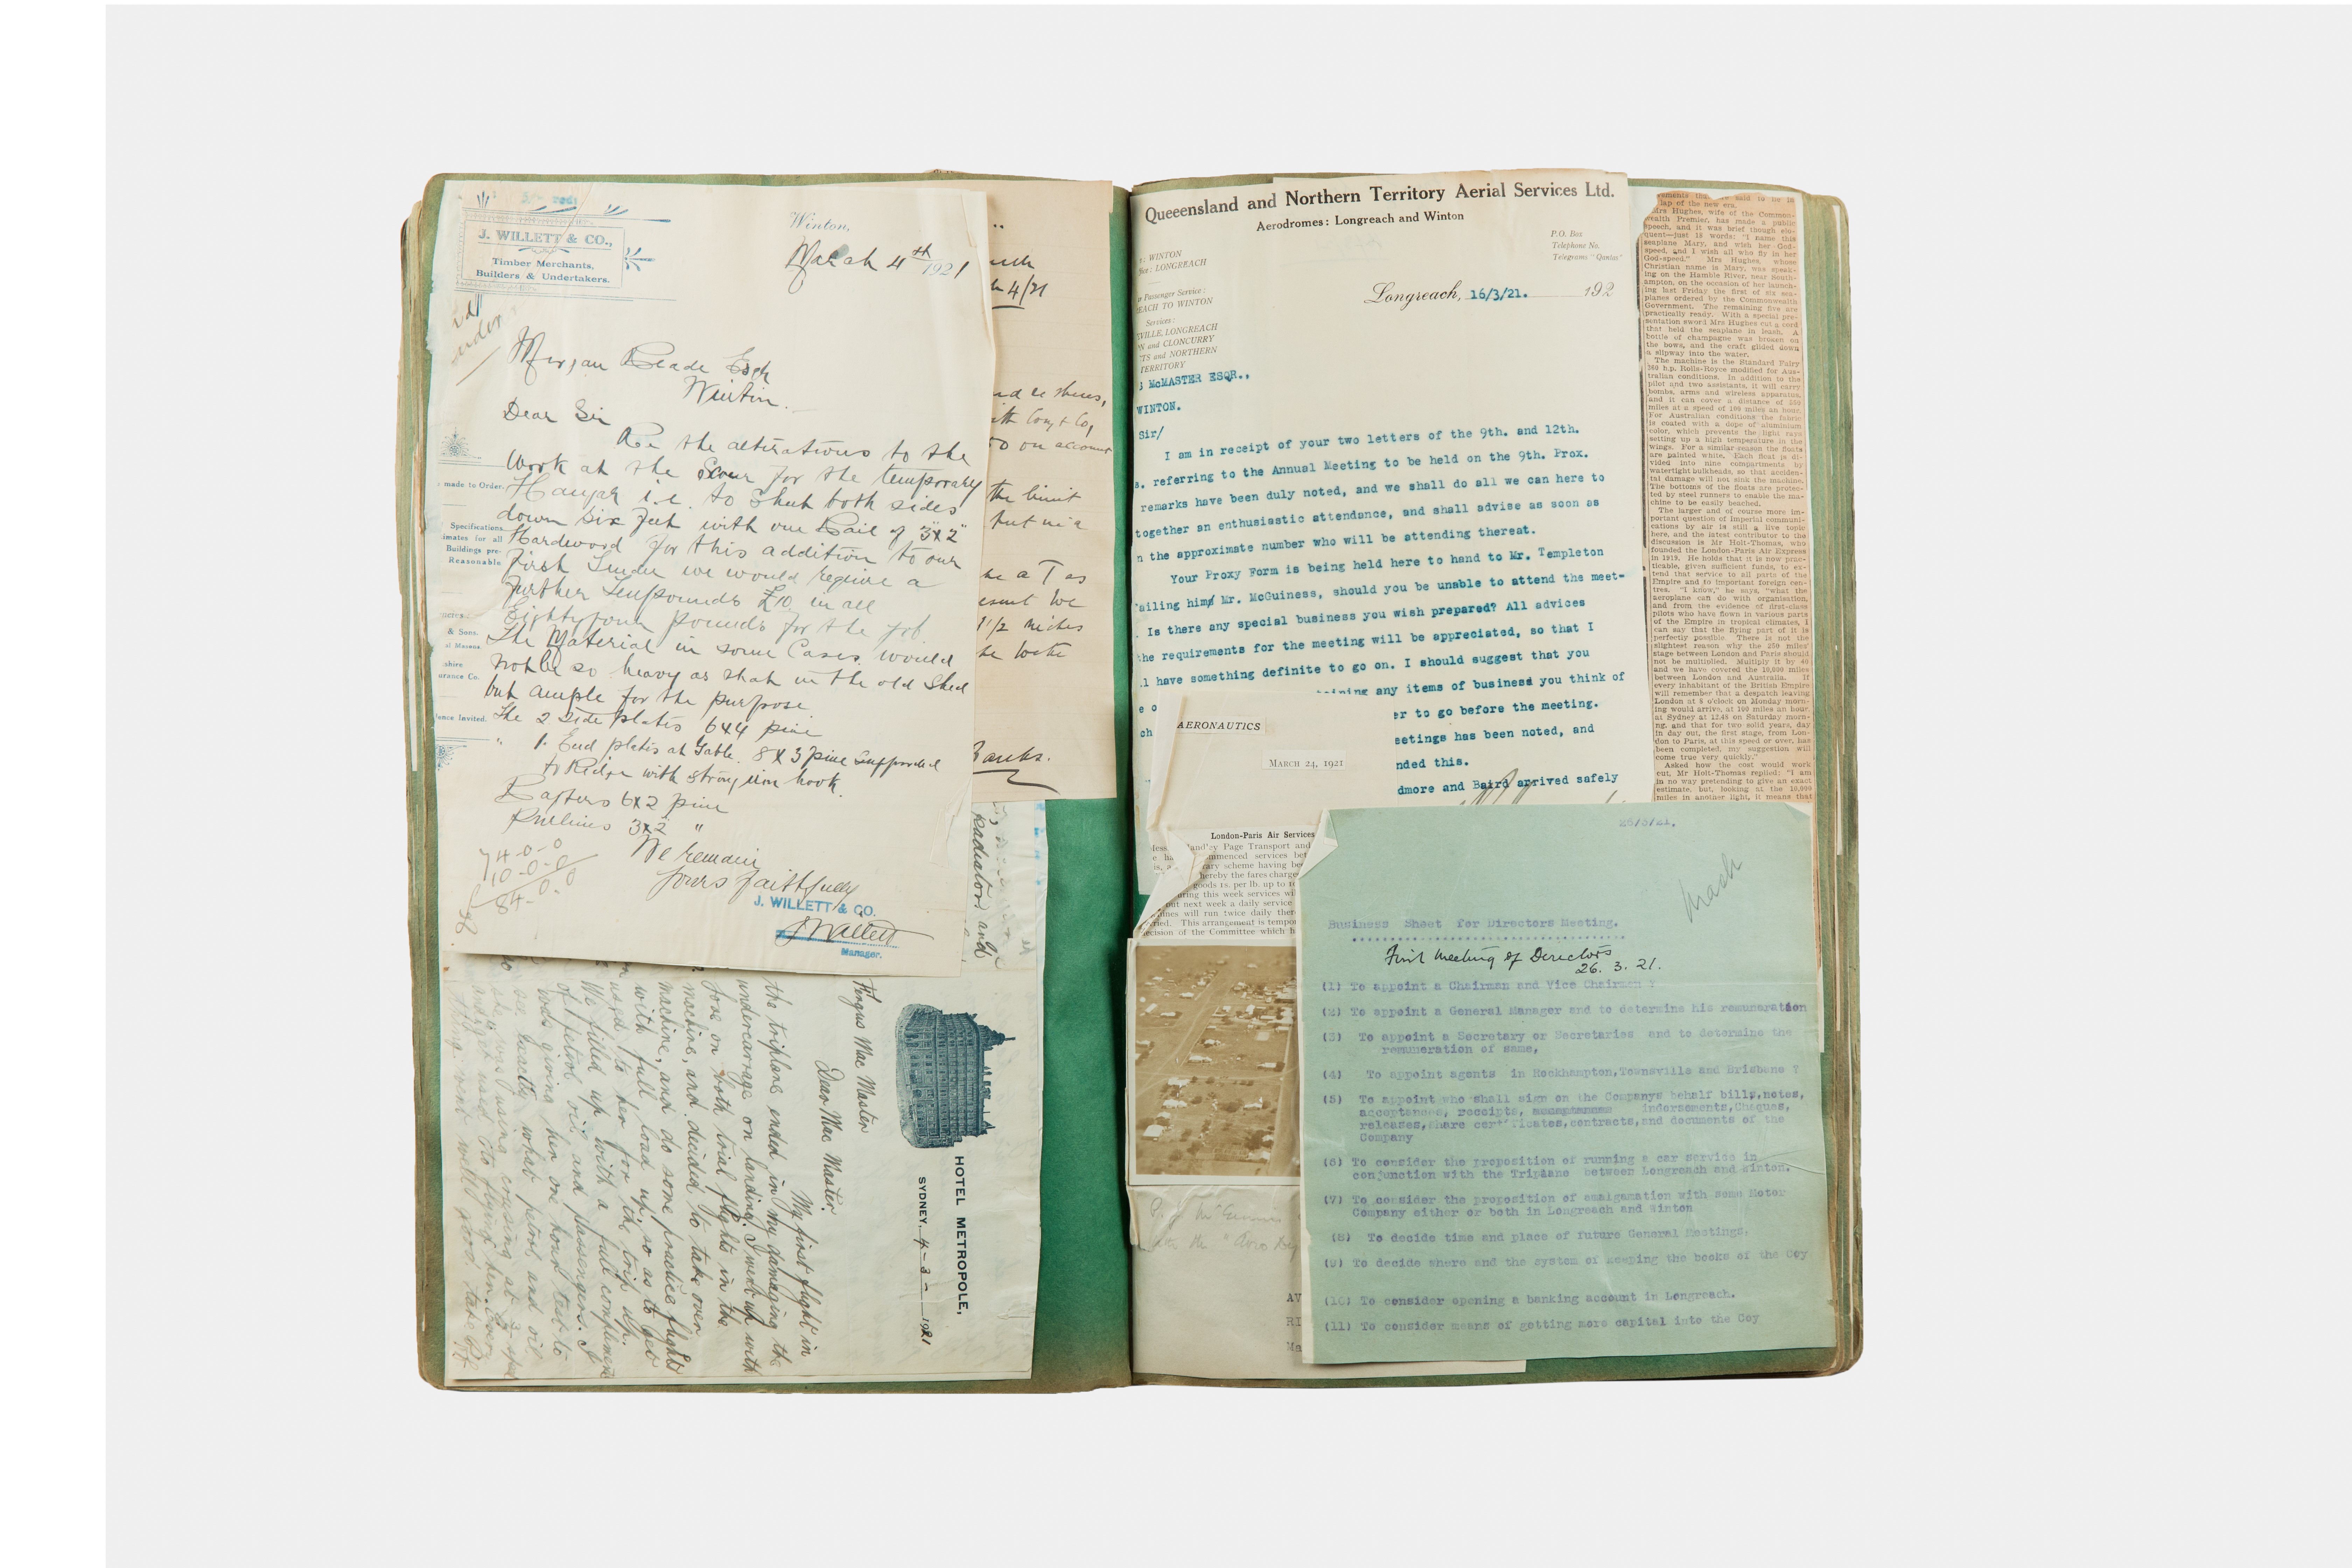 J. WILLETT & CO.,
Timber Merchants,
Builders & Undertakers.
Winton,
March 4th 1921
Morgan Reade Esqr
Winton.
Dear Sir
Re the altirations to the
Work at the Scour for the temporary
Hangar i.e. to Shut both sides
down six feet with one Rail of 3"x2"
Hardwood for this addition to our
first Tender we would require a
further Tenpounds £10 in all
Eightyfour pounds for the job.
The Material in some Cases would
not be so heavy as that in the old Shed
but ample for the purpose
The 2 Side plates 6x4 pine
" 1. End plates at Gable. 8x3 pine Supported
to Ridge with strong iron hook.
Rafters 6x2 pine
Purlins 3x2 "
We remain
Yours faithfully
J. WILLETT & CO.
Manager.
74-0-0
10-0-0
84-0-0
made to Order.
Specifications
imates for all
Buildings pre-
Reasonable
& Sons.
al Masons.
shire
urance Co.
ence Invited.
4/21
nd ce shares,
on account
the limit
put in a
be a T as
1 1/2 miles
Banks.
radiator, and
HOTEL METROPOLE,
SYDNEY, 4-3-1921
Fergus Mac Master
Dear Mac Master.
My first flight in
the triplane ended in my damaging the
undercarriage on landing. I went up with
Jone on both trial flights in the
machine, and decided to take over
machine, and do some practice flights
with full load up, so as to get
used to her for the trip up.
We filled up with a full compliment
of petrol oil and passengers. I
was giving her one hour test to
see exactly what petrol and oil
she was using cruising at
and get used to flying her. Every
thing went well
Queeensland and Northern Territory Aerial Services Ltd.
Aerodromes: Longreach and Winton
: WINTON
fice: LONGREACH
P.O. Box
Telephone No.
Telegrams "Qantas"
r Passenger Service:
EACH TO WINTON
Services:
VILLE, LONGREACH
N and CLONCURRY
TS and NORTHERN
TERRITORY
Longreach, 16/3/21. 192
McMASTER ESQR.,
WINTON.
Sir/
I am in receipt of your two letters of the 9th. and 12th.
s. referring to the Annual Meeting to be held on the 9th. Prox.
remarks have been duly noted, and we shall do all we can here to
together an enthusiastic attendance, and shall advise as soon as
n the approximate number who will be attending thereat.
Your Proxy Form is being held here to hand to Mr. Templeton
ailing him Mr. McGuiness, should you be unable to attend the meet-
. Is there any special business you wish prepared? All advices
he requirements for the meeting will be appreciated, so that I
l have something definite to go on. I should suggest that you
ining any items of business you think of
er to go before the meeting.
eetings has been noted, and
nded this.
dmore and Baird arrived safely
AERONAUTICS
MARCH 24, 1921
London-Paris Air Services
Handley Page Transport and
mmenced services bet
rary scheme having be
hereby the fares charge
goods 1s. per lb. up to 10
uring this week services wi
but next week a daily service
ines will run twice daily ther
ried. This arrangement is tempo
ecision of the Committee which h
lap of the new era.
Mrs Hughes, wife of the Common-
wealth Premier, has made a public
speech, and it was brief though elo-
quent—just 18 words: "I name this
seaplane Mary, and wish her God-
speed, and I wish all who fly in her
God-speed." Mrs Hughes, whose
Christian name is Mary, was speak-
ing on the Hamble River, near South-
ampton, on the occasion of her launch-
ing last Friday the first of six sea-
planes ordered by the Commonwealth
Government. The remaining five are
practically ready. With a special pre-
sentation sword Mrs Hughes cut a cord
that held the seaplane in leash. A
bottle of champagne was broken on
the bows, and the craft glided down
a slipway into the water.
The machine is the Standard Fairy
360 h.p. Rolls-Royce modified for Aus-
tralian conditions. In addition to the
pilot and two assistants, it will carry
bombs, arms and wireless apparatus,
and it can cover a distance of 550
miles at a speed of 100 miles an hour.
For Australian conditions the fabric
is coated with a dope of aluminium
color, which prevents the light rays
setting up a high temperature in the
wings. For a similar reason the floats
are painted white. Each float is di-
vided into nine compartments by
watertight bulkheads, so that acciden-
tal damage will not sink the machine.
The bottoms of the floats are protec-
ted by steel runners to enable the ma-
chine to be easily beached.
The larger and of course more im-
portant question of Imperial communi-
cations by air is still a live topic
here, and the latest contributor to the
discussion is Mr Holt-Thomas, who
founded the London-Paris Air Express
in 1919. He holds that it is now prac-
ticable, given sufficient funds, to ex-
tend that service to all parts of the
Empire and to important foreign cen-
tres. "I know," he says, "what the
aeroplane can do with organisation,
and from the evidence of first-class
pilots who have flown in various parts
of the Empire in tropical climates, I
can say that the flying part of it is
perfectly possible. There is not the
slightest reason why the 250 miles'
stage between London and Paris should
not be multiplied. Multiply it by 40
and we have covered the 10,000 miles
between London and Australia. If
every inhabitant of the British Empire
will remember that a despatch leaving
London at 8 o'clock on Monday morn-
ing would arrive, at 100 miles an hour,
at Sydney at 12.48 on Saturday morn-
ing, and that for two solid years, day
in day out, the first stage, from Lon-
don to Paris, at this speed or over, has
been completed, my suggestion will
come true very quickly."
Asked how the cost would work
out, Mr Holt-Thomas replied: "I am
in no way pretending to give an exact
estimate, but, looking at the 10,000
miles in another light, it means that
26/3/21.
Business Sheet for Directors Meeting.
First Meeting of Directors
26. 3. 21.
(1) To appoint a Chairman and Vice Chairman ?
(2) To appoint a General Manager and to determine his remuneration
(3) To appoint a Secretary or Secretaries and to determine the
remuneration of same,
(4) To appoint agents in Rockhampton,Townsville and Brisbane ?
(5) To appoint who shall sign on the Companys behalf bills,notes,
acceptances, receipts, indorsements,Cheques,
releases,share certificates,contracts,and documents of the
Company
(6) To consider the proposition of running a car service in
conjunction with the Triplane between Longreach and Winton.
(7) To consider the proposition of amalgamation with some Motor
Company either or both in Longreach and Winton
(8) To decide time and place of future General Meetings.
(9) To decide where and the system of keeping the books of the Coy
(10) To consider opening a banking account in Longreach.
(11) To consider means of getting more capital into the Coy
P. J. McGinness
AV
RI
Ma